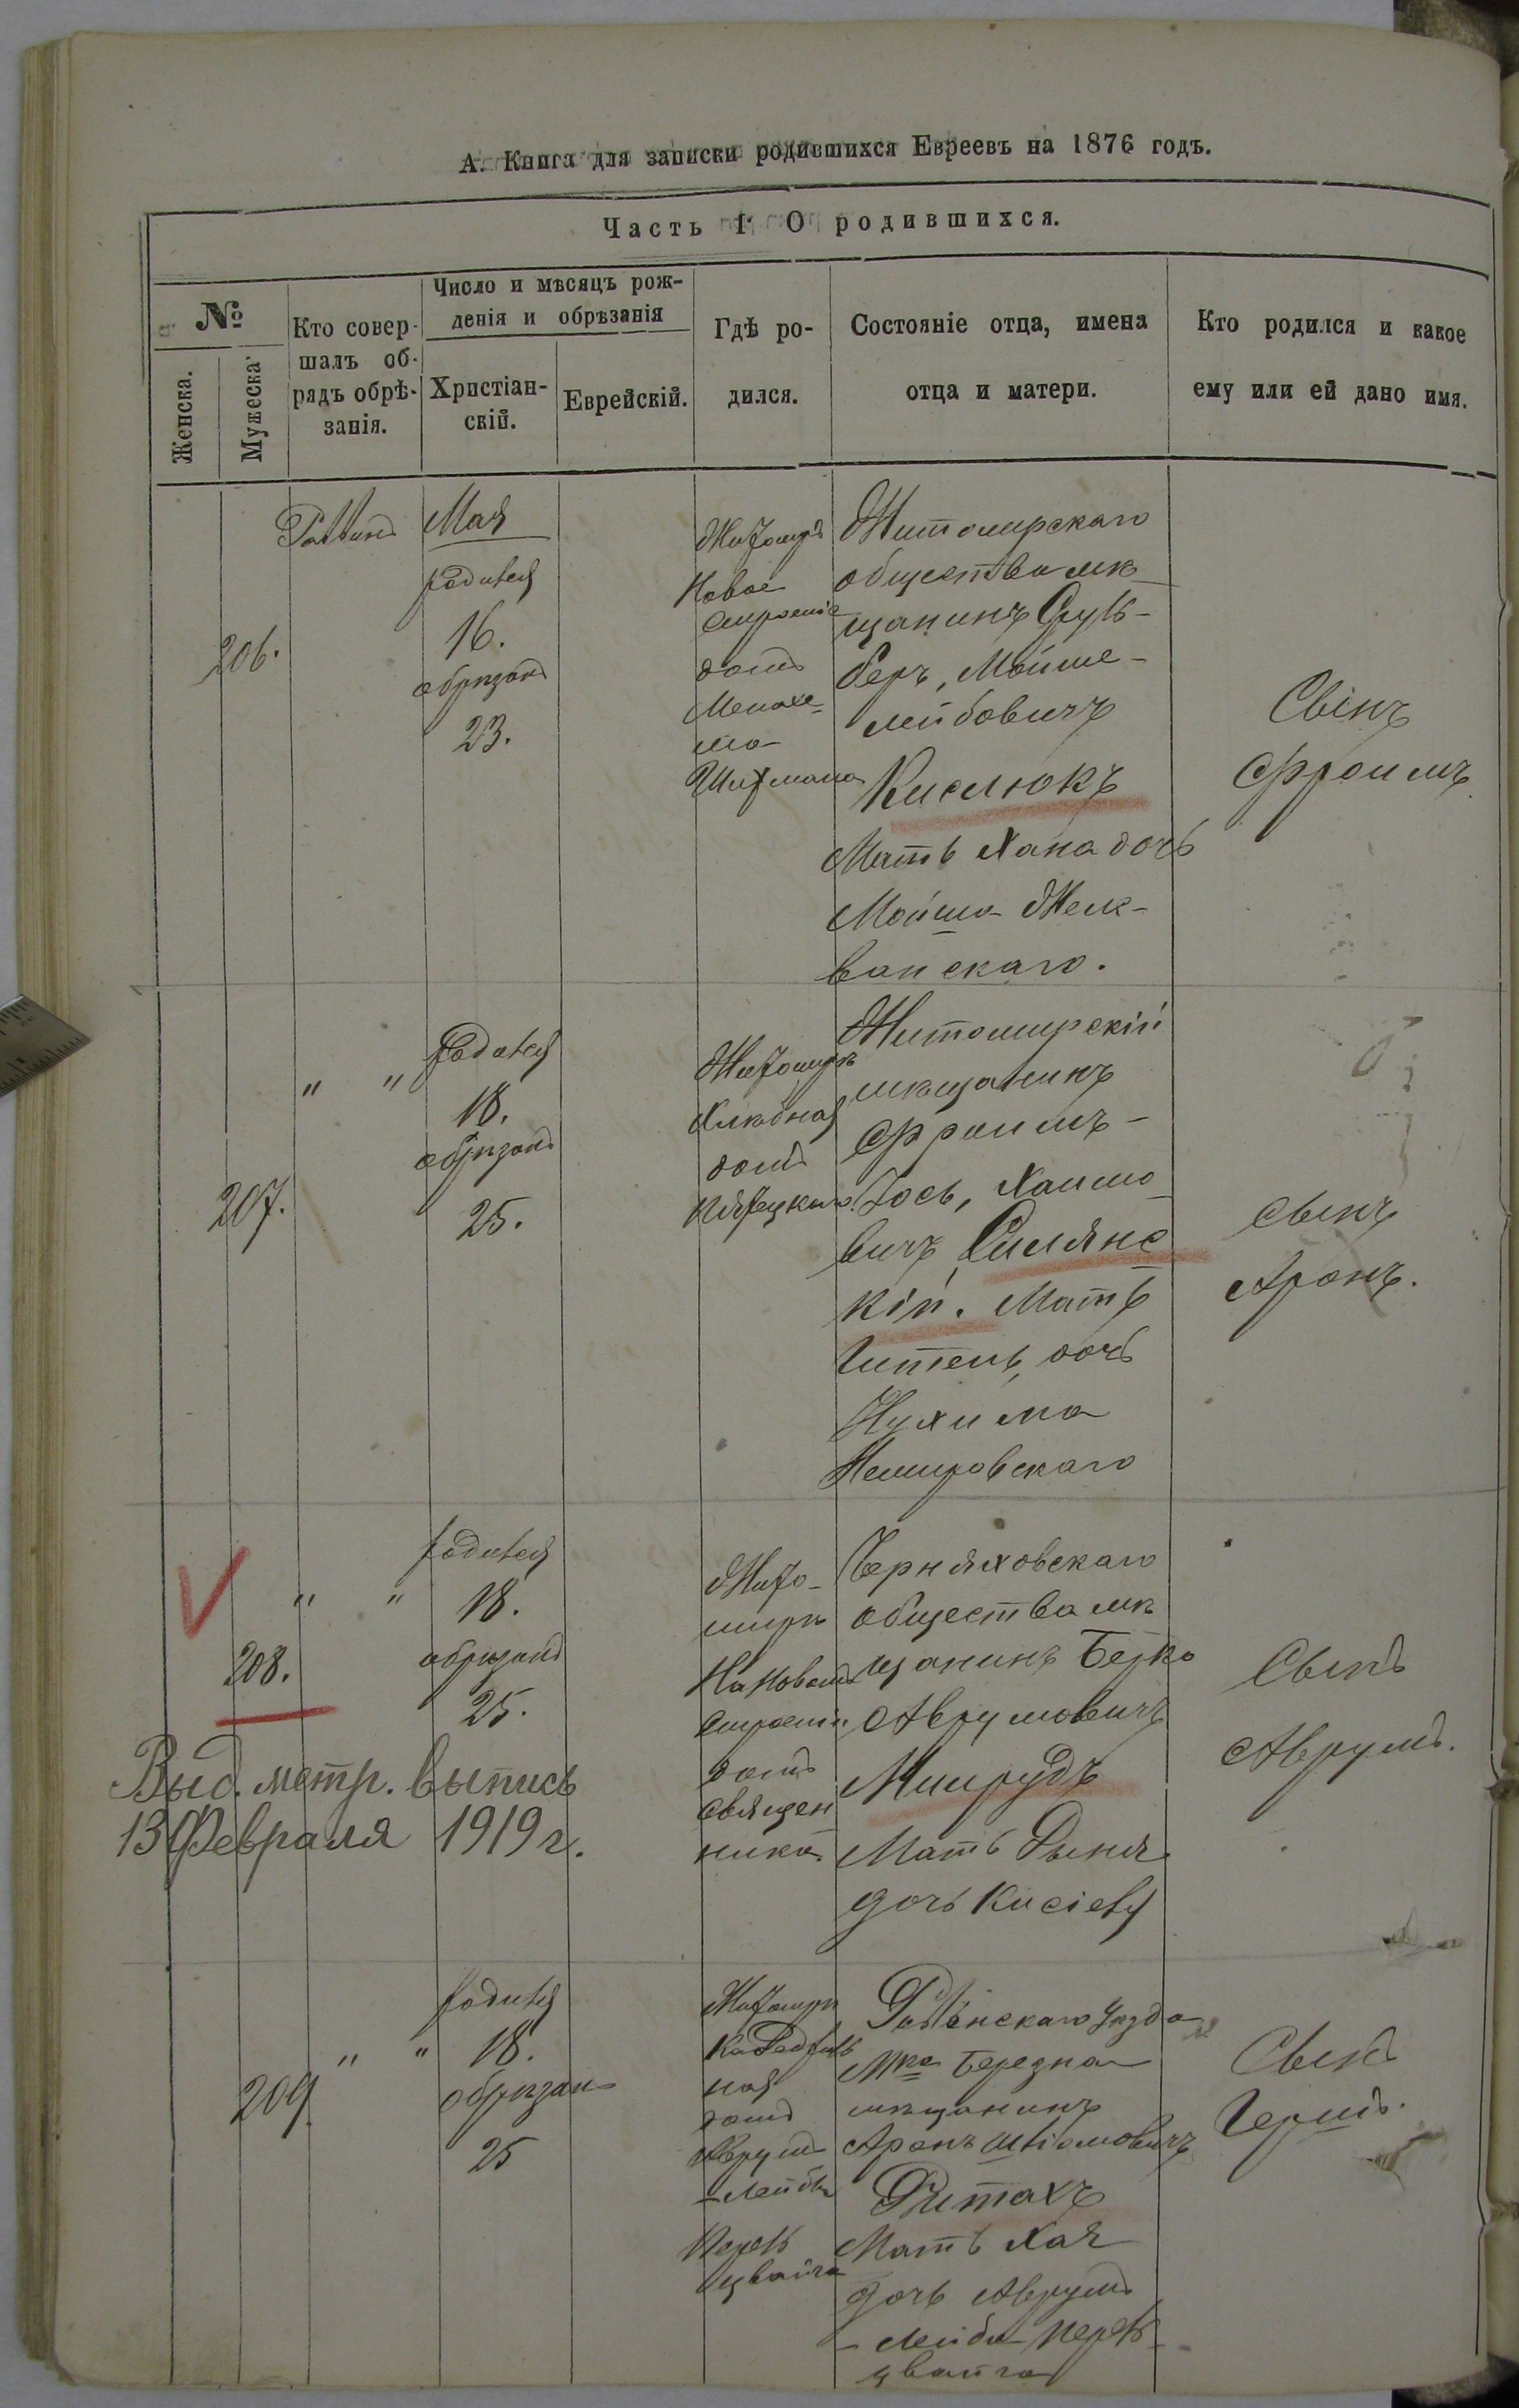 А. Книга для записки родившихся Евреевъ на 1876 годъ.
Часть I О родившихся.
№
Женска.
Мужеска
Кто совер-
шалъ об-
рядъ обрѣ-
занія.
Число и мѣсяцъ рож-
денія и обрѣзанія
Христіан-
скій.
Еврейскій.
Гдѣ ро-
дился.
Состояніе отца, имена
отца и матери.
Кто родился и какое
ему или ей дано имя.
206.
Раввинъ
Мая
родился
16.
обрѣзанъ
23.
Житомиръ
Новое
строеніе
домъ
Менахе-
ма
Житомирскаго
общества мѣ-
щанинъ Сруль-
беръ, Мойше-
лейбовичъ
Кислюкъ
Мать Хана дочь
Мойша
ванскаго.
Сынъ
Фроимъ
207.
" "
родился
18.
обрѣзанъ
25.
Житомиръ
Хлѣбная
домъ
Житомирскій
мѣщанинъ
Фроимъ-
Іось, Хаимо
вичъ Смѣлянс
кій. Мать
Гитель, дочь
Нухима
Немировскаго
сынъ
Аронъ.
208.
" "
родился
18.
обрѣзанъ
25.
Жито-
миръ
На новомъ
строеніи
домъ
священ
ника.
Черняховскаго
общества мѣ
щанинъ Берко
Аврумовичъ
Мишрудъ
Мать Дыня
дочь Кисіевы
Сынъ
Аврумъ.
Выд. метр. выпись
13 Февраля 1919 г.
209
" "
родился
18.
обрѣзанъ
25
Житомиръ
Кафедраль
ная
домъ
Аврумъ
-Лейбы
Перель
цвайга
Ровенскаго уѣзда
Мка Березна
мѣщанинъ
Аронъ Шліомовичъ
Ритахъ
Мать Хая
дочь Аврумъ
-Лейба Перель
цвайга
Сынъ
Гершъ.